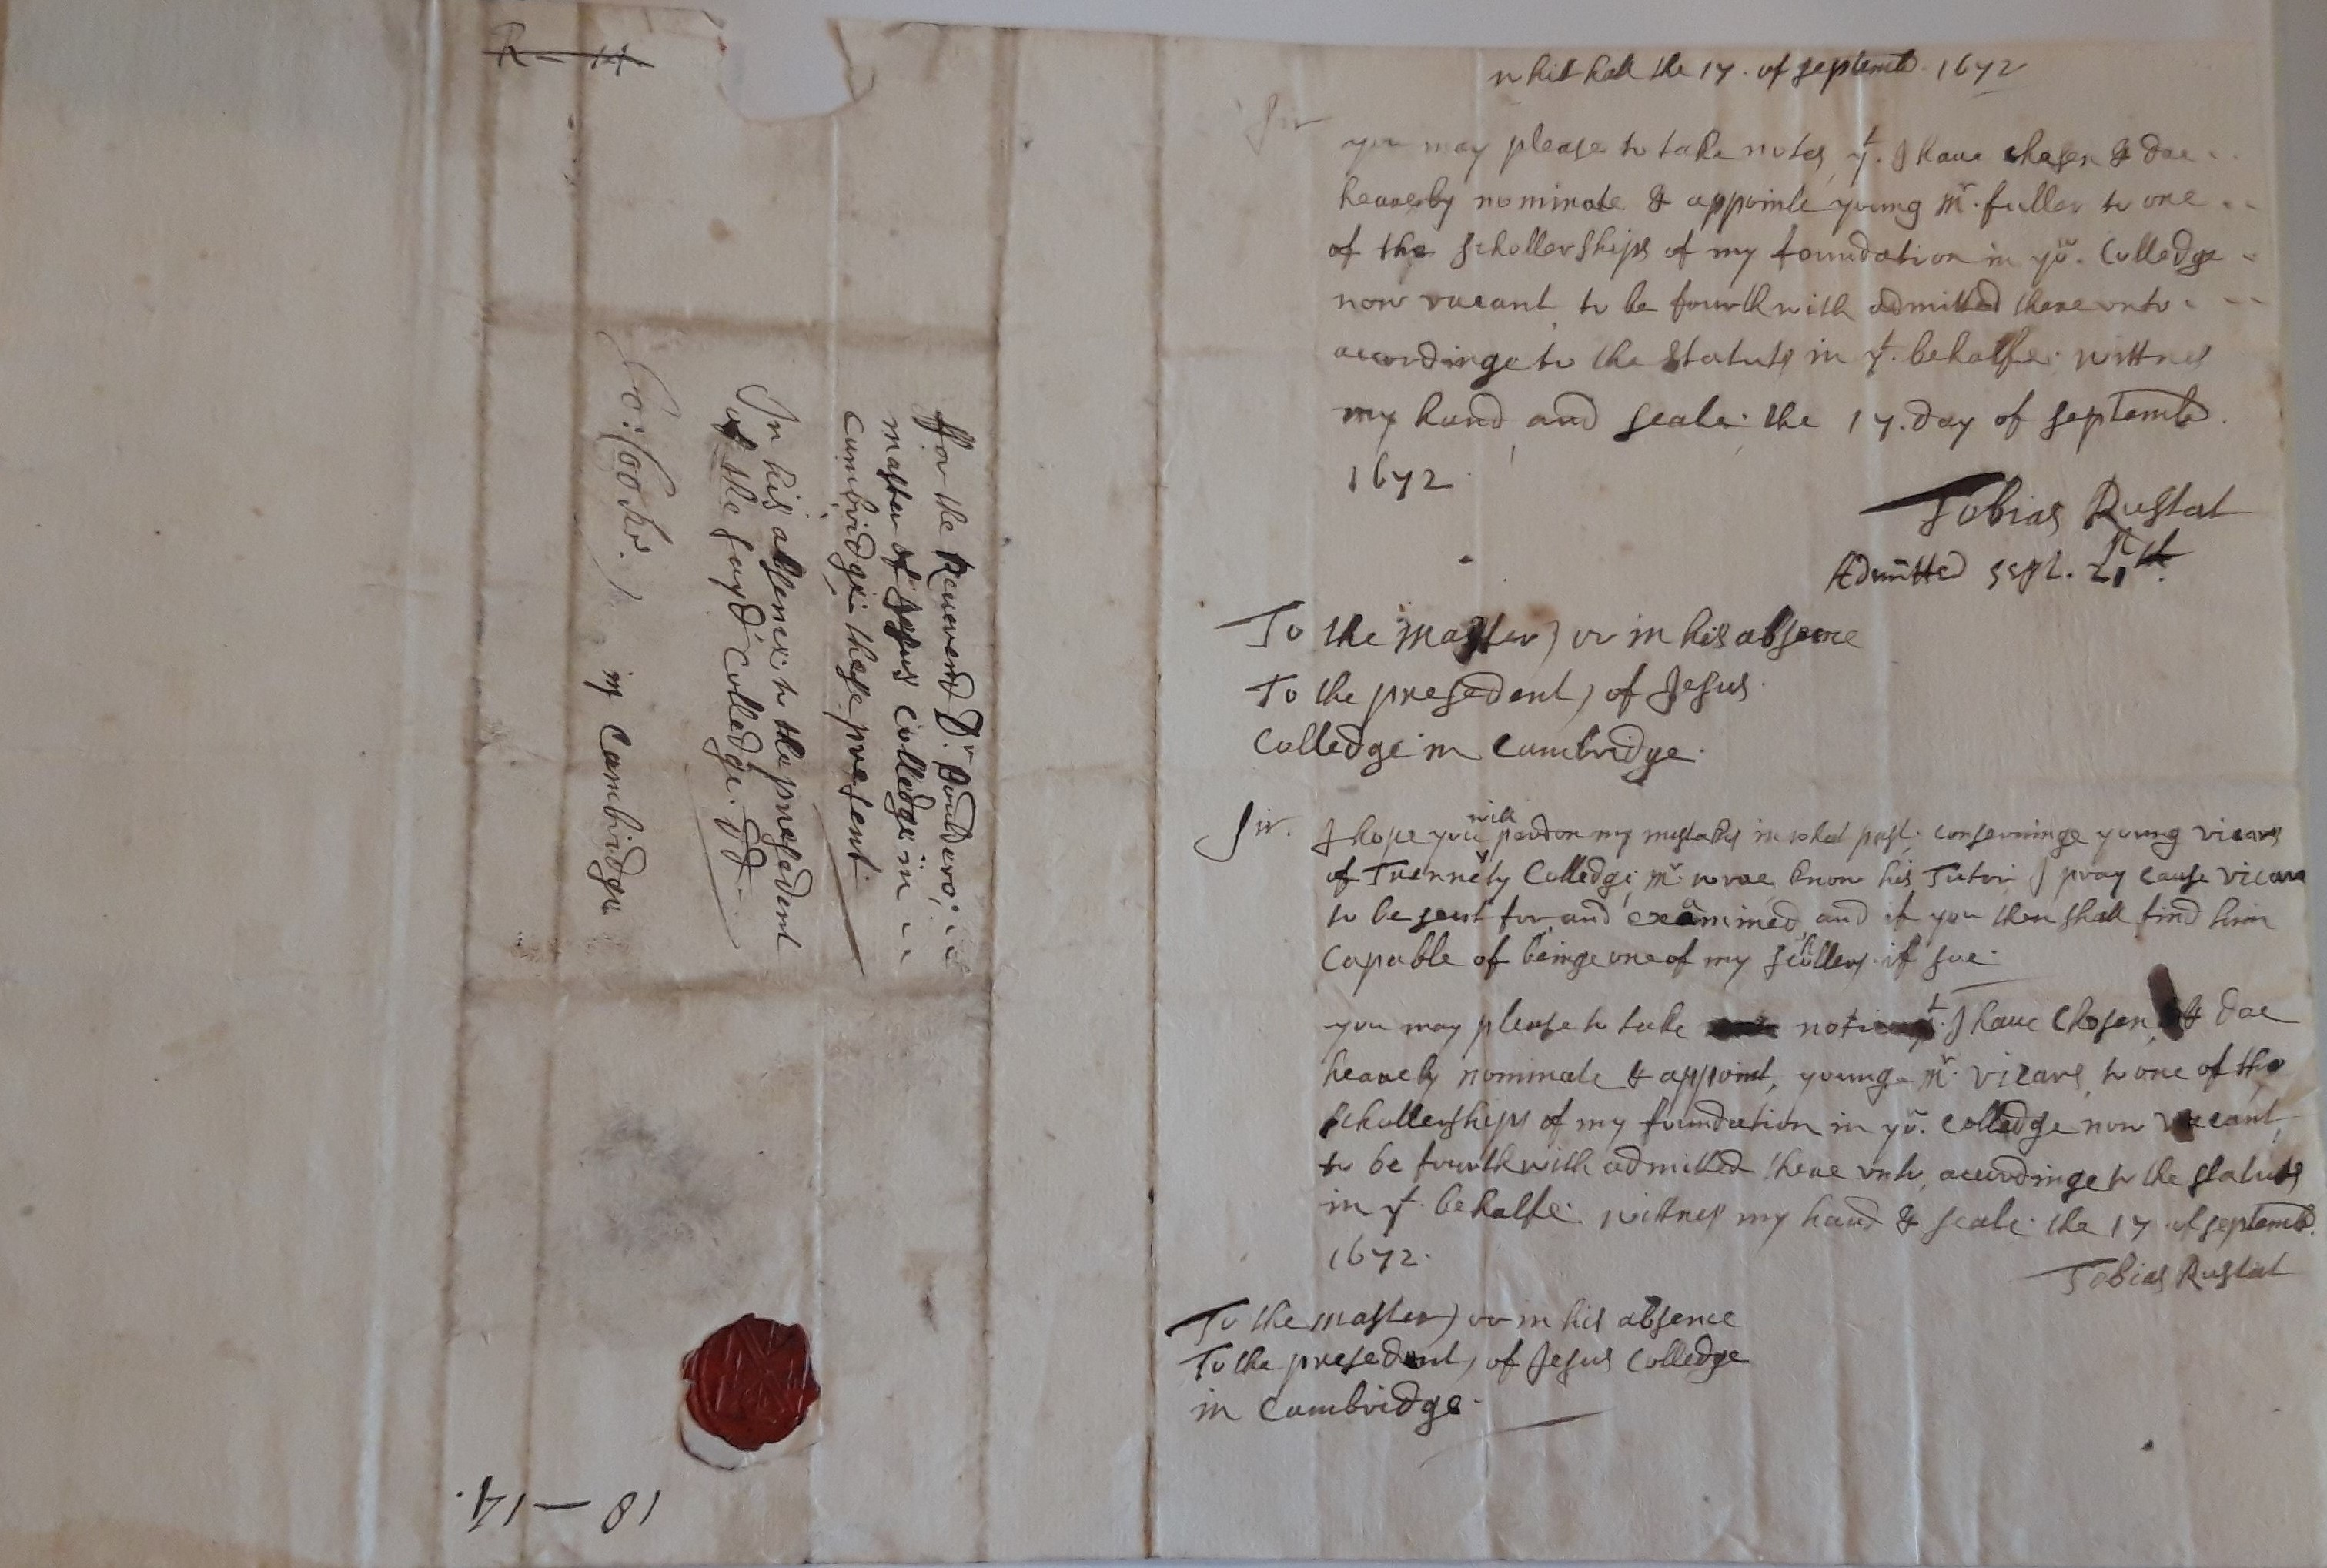 whit hall the 17. of septemb. 1672
Sir
you may please to take notes, yt. I have chosen & doe
heareby nominate & appointe young Mr. fuller to one
of the schollerships of my foundation in yor. Colledge
now vacant to be fourthwith admitted there vnto
accordinge to the statuts in yt. behalfe: wittnes
my hand, and seale: the 17. day of septemb.
1672.
Tobias Rustat
Admitted sept. 21th.
To the Master) or in his absence
To the presedent) of Jesus.
Colledge in Cambridge.
Sir. I hope you will pardon my mistakes in what past: conserninge young vicars
of Trennety Colledge; Mr. know his Tutor I pray cause vicars
to be sent for, and examined, and if you then shall find him
Capable of beinge one of my scollers. if soe.
you may please to take notice yt. I have Chosen & doe
heareby nominate & appoint, young Mr. vicars, to one of the
schollerships of my foundation in yor. Colledge now vacant,
to be fourthwith admitted there vnto, accordinge to the statuts
in yt. behalfe. wittnes my hand & seale: the 17 of septemb.
1672.
Tobias Rustat
To the Master) or in his absence
To the presedent) of Jesus Colledge
in Cambridge.
ffor the Reuerend Dr. Bouldero;
Master of Jesus Colledge in
Cambridge: these present.
In his absence: to the presedent
of the sayd Colledge. dd.
in Cambridge
R — 14.
18 — 14.